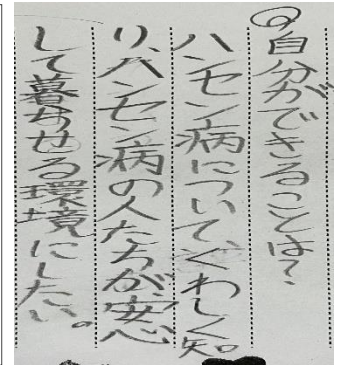 ◎自分ができることは?
ハンセン病について、くわしく知
り、ハンセン病の人たちが、安心
して暮らせる環境にしたい。